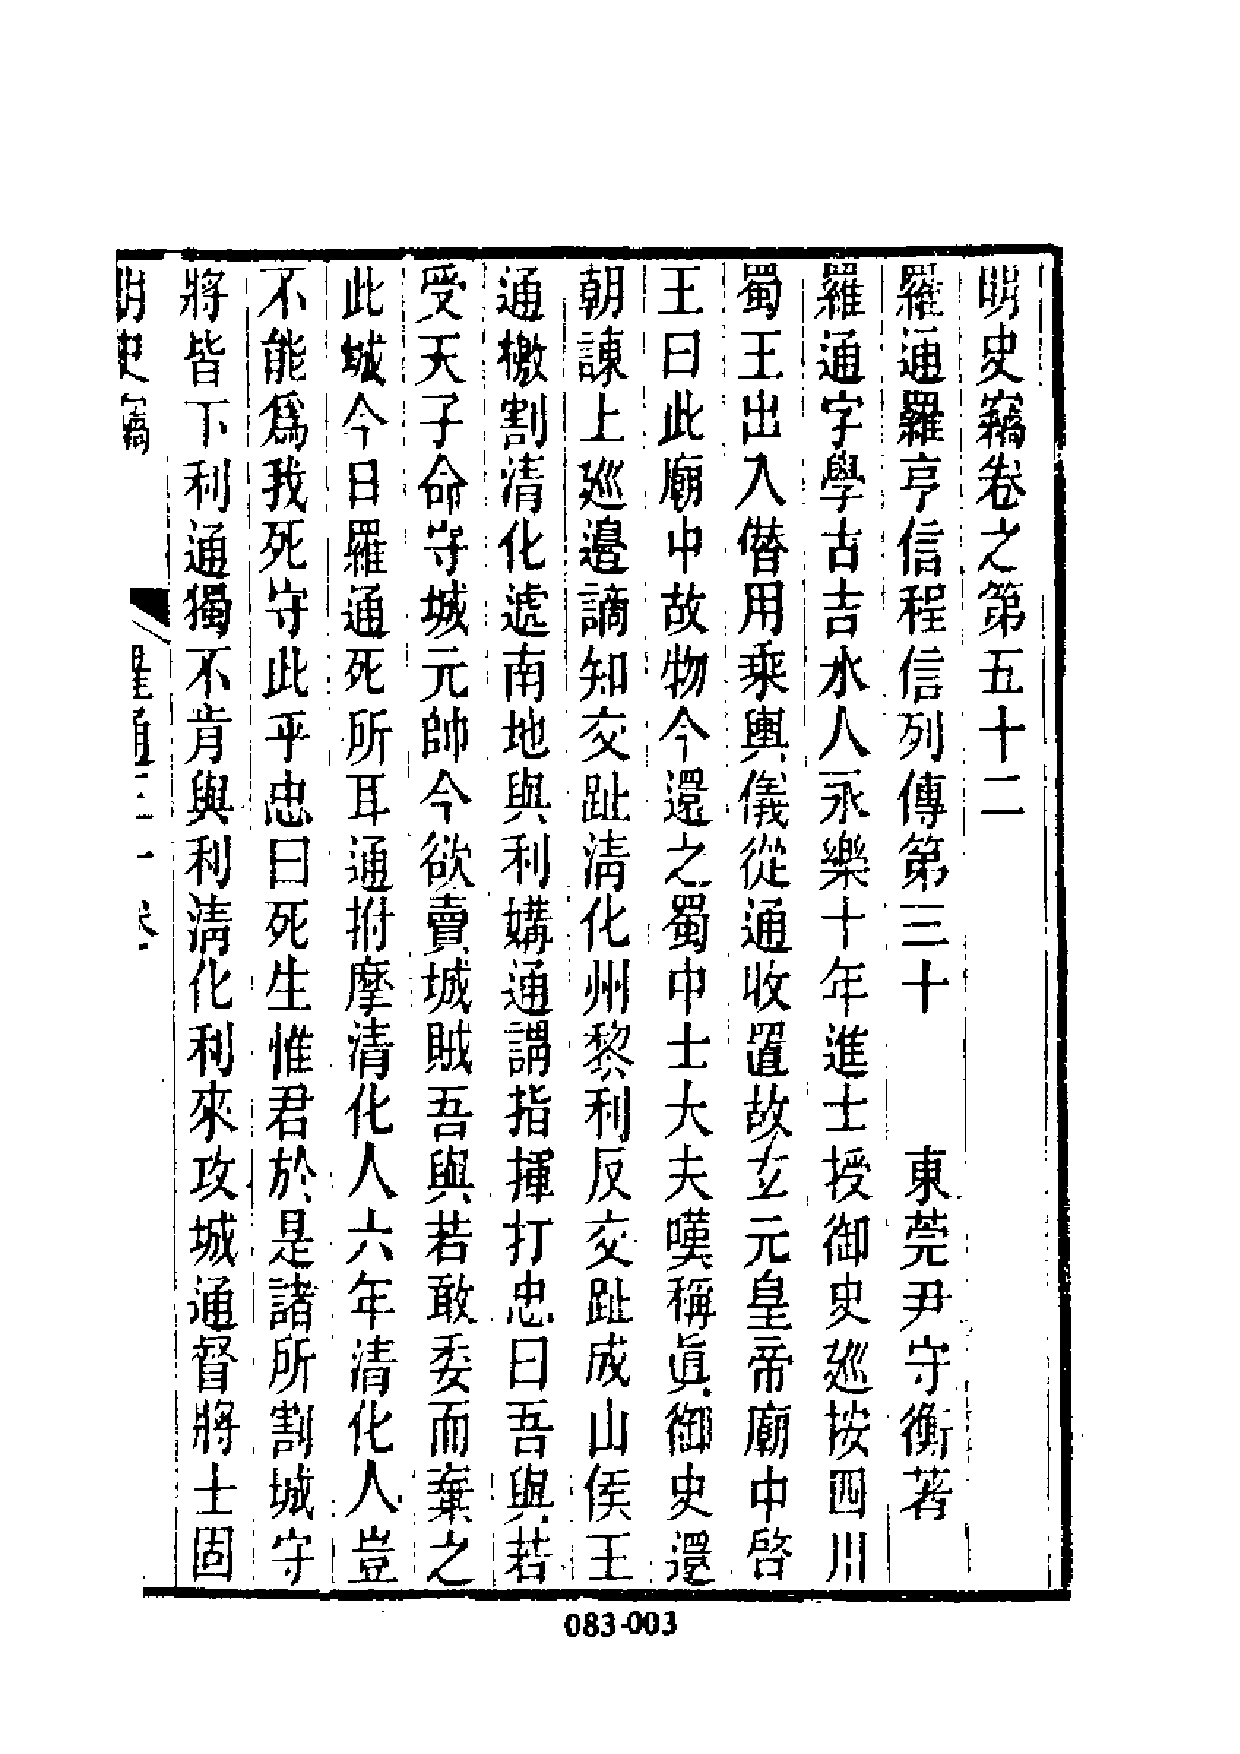 明史竊卷之第五十二
羅通羅亨信程信列傳第三十 東莞尹守衡著
羅通字學古吉水人永樂十年進士授御史巡按四川
蜀王出入僣用乘輿儀從通收置故玄元皇帝廟中啓
王曰此廟中故物今還之蜀中士大夫嘆稱眞御史還
朝諫上巡邉謫知交趾淸化州黎利反交趾成山侯王
通檄割清化迤南地與利媾通謂指揮打忠曰吾與若
受天子命守城元帥今欲賣城賊吾與若敢委而棄之
此城今日羅通死所耳通拊摩清化人六年清化人豈
不能爲我死守此乎忠曰死生惟君於是諸所割城守
將皆下利通獨不肯與利淸化利來攻城通督將士固
明史竊 羅通三十 卷
083-003